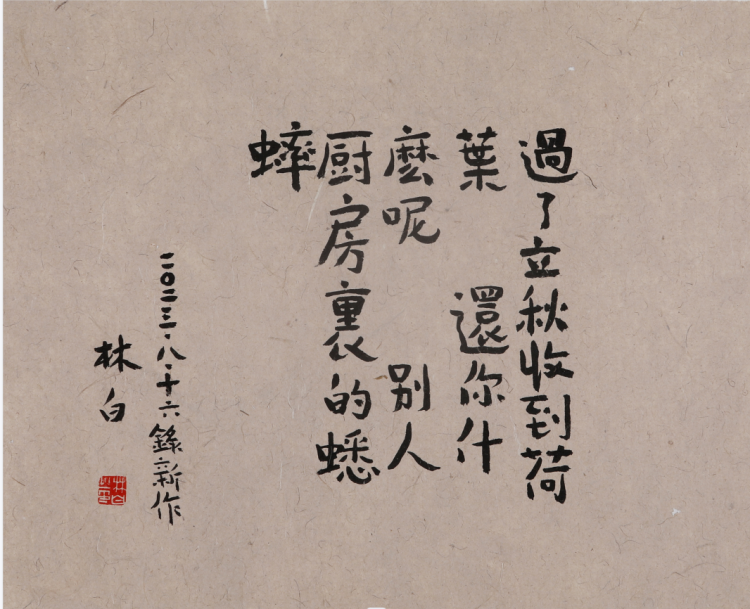 過了立秋收到荷
葉 還你什
麽呢 别人
厨房裏的蟋
蟀
二〇二三·八·十六錄新作
林白